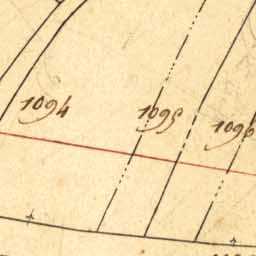 1094
1095
1096